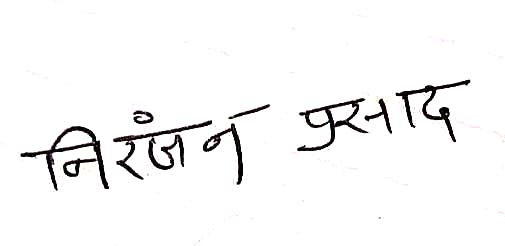 निरंजन प्रसाद